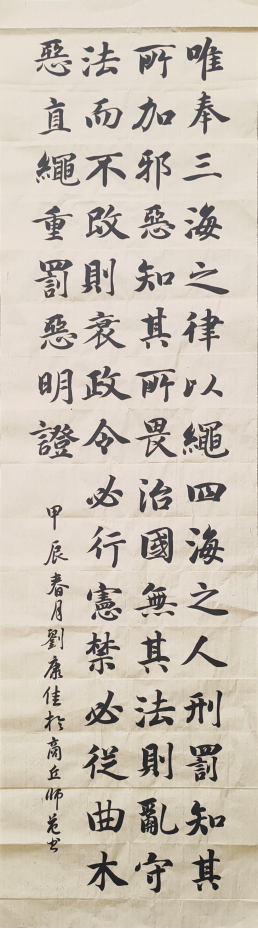 唯奉三海之律以繩四海之人刑罰知其
所加邪惡知其所畏治國無其法則亂守
法而不改則衰政令必行憲禁必從曲木
惡直繩重罰惡明證
甲辰春月劉康佳於商丘師范书